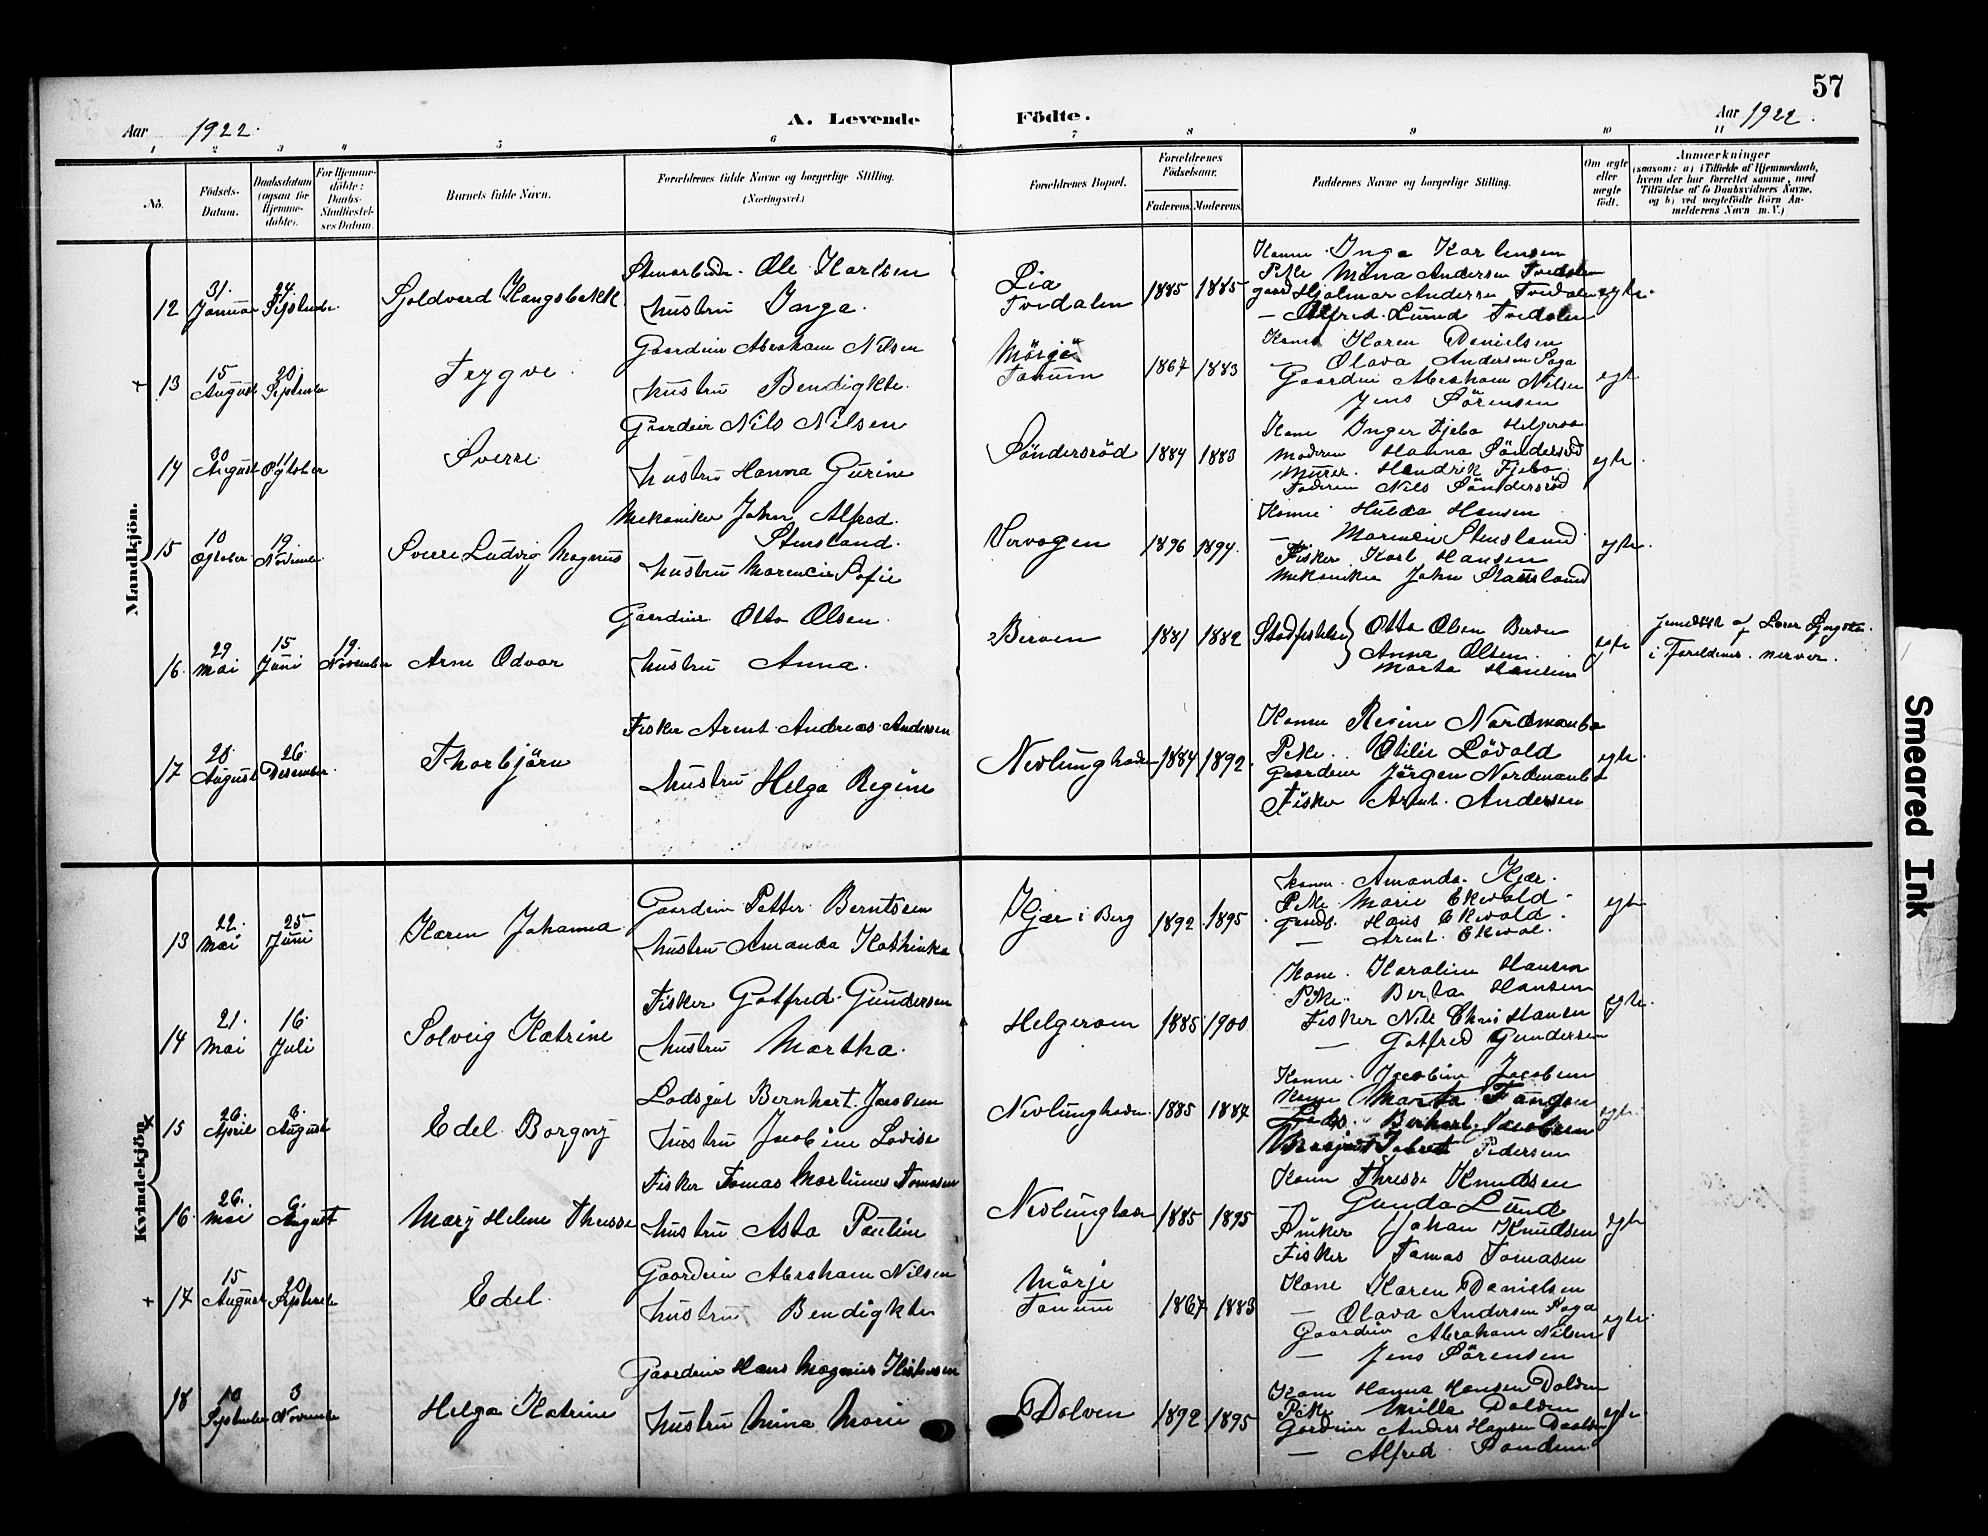 57
Aar 1922.
A. Levende Födte.
Aar 1922.
1 2 3 4 5 6 7 8 9 10 11
No.
Födsels-Datum.
Daabsdatum (ogsaa for Hjemme-döbte).
For Hjemme-döbte: Daabs-Stadfæstel-ses Datum.
Barnets fulde Navn.
Forældrenes fulde Navne og borgerlige Stilling. (Næringsvei.)
Forældrenes Bopæl.
Forældrenes Födselsaar.
Faderens. Moderens.
Faddernes Navne og borgerlige Stilling.
Om ægte eller uægte födt.
Anmærkninger
(saasom: a) i Tilfælde af Hjemmedaab, hvem der har forrettet samme, med Tilföielse af to Daabsvidners Navne, og b) ved uægtefödte Börn An-melderens Navn m. V.)
Mandkjön.
12 31. Januar 24. September
Ole Karlsen
hustru Inga.
Lia
Tvedalen
1885 1885
Kone Inga Karlensen
Pike Mina Andersen Tvedalen
Gaard Hjalmar Anderse Tvedalen
— Alfred Lund Tvedalen
egte.
+ 13 15 August 20. September
Trygve.
Gaardeier Abraham Nilsen
hustru Bendigkte.
Mörje
Tanum
1867 1883
Kone Karen Danielsen
— Olava Andersen Saga
Gaardeier Abraham Nilsen
Jens Sörensen
egte
14 30 August 11 Ogtober
Sverre.
Gaardeier Nils Nilsen
hustru Hanna Gurine
Söndersröd
1884 1883
Kone Inger Fjebo Helgeroa
Moderen Hanna Söndersröd
Murer. Hendrik Fjebo.
Faderen Nils Söndersröd
egte.
15 10 Ogtober 19. November
Sverre Ludvig Magnus
Mekaniker John Alfred.
Stensland.
hustru Marencie Sofie
Vervogen
1896 1894.
Konne Hulda Hansen
— Marencie Stensland
Fisker Karl Hansen
Mekaniker John Stensland
egte.
16. 29 Mai 15 Juni 19. November
Arne Odvar
Gaardeier Otto Olsen.
hustru Anna.
Berven
1881 1882
Otto Olsen Berven
Anna Olsen.
Marta Hansen
egte
17 28. August 26 Desember.
Thorbjörn
Fisker Arent Andreas Andersen
hustru Helga Regine
Nevlunghavn
1884 1892.
Konne Regine Nordmanbo
Pike. Otilie Lövald
Gaardeier Jörgen Nordmanbo
Fisker Arent. Andersen
egte.
Kvindekjön
13 22. Mai 25 Juni
Karen Johanna
Gaardeier Petter Berntsen
hustru Amanda Kathinka
Kjær i Berg
1892 1895
Konne. Amanda Kjær.
Pike Marie Ekvald
Hans Ekvold.
— Arent. Ekvol.
egte
14 21. Mai 16. Juli
Solveig Katrine
Fisker Gotfred Gundersen
hustru Martha.
Helgeroen
1885 1900
Kone. Karoline Hansen
Pike. Berta Hansen
Fisker Nils Chris Hansen
— Gotfred Gundersen
egte.
x 15 26. April 6. August
Edel Borgny
Lodsgut Bernhart Jacobsen
hustru Jacobine Lovise
Nevlunghavn.
1885 1884
Konne. Jacobine Jacobsen
Kone Marta Tangen
Lods. Bernhart Jacobsen
Pedersen
egte.
16. 26. Mai 6. August
Mary Helene Therese
Fisker Tomas Martinus Tomasen
hustru Asta Pauline
Nevlunghavn
1885 1895
Konne Therese Knudsen
— Gunda Lund
Sniker Johan Knudsen
Fisker Tomas Tomasen
egte
+ 17 15 August 20. September
Edel.
Gaardeier Abraham Nilsen
hustru Bendigkte
Mörje
Tanum
1867 1883
Kone Karen Danielsen
— Olava Andersen Saga
Gaardeier Abraham Nilsen
— Jens Sörensen
egte.
18 10 September 3 November
Helga Katrine
Gaardeier Hans Magnus
hustru Mina Marie
Dolven
1892 1895
Kone Hanna Hansen Dolven
Pike Milla Dolven
Gardeier Anders Hansen Dolven
— Alfred
egte
Smeared Ink